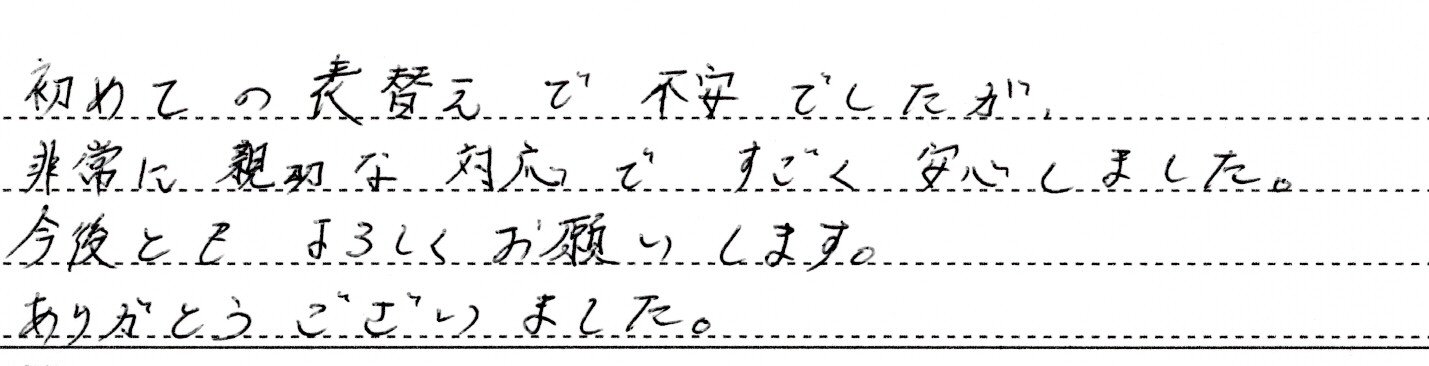 初めての表替えで不安でしたが、
非常に親切な対応ですごく安心しました。
今後ともよろしくお願いします。
ありがとうございました。